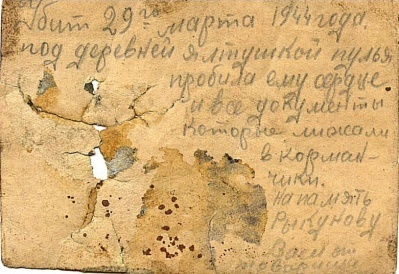 Убит 29го марта 1944 года.
под деревней Ялтушкой пулья
пробила ему сердце
и все документы
которые лижали
в корман-
чики.
на память
Рыкунову
от